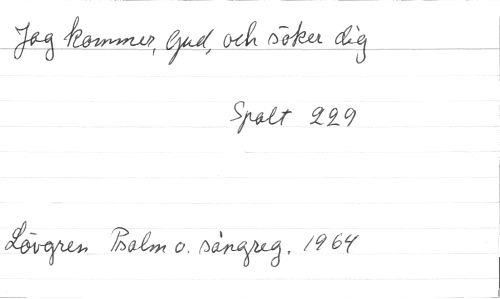 Jag kommer, Gud, och söker dig
Spalt 229
Lövgren Psalm o. sångreg. 1964